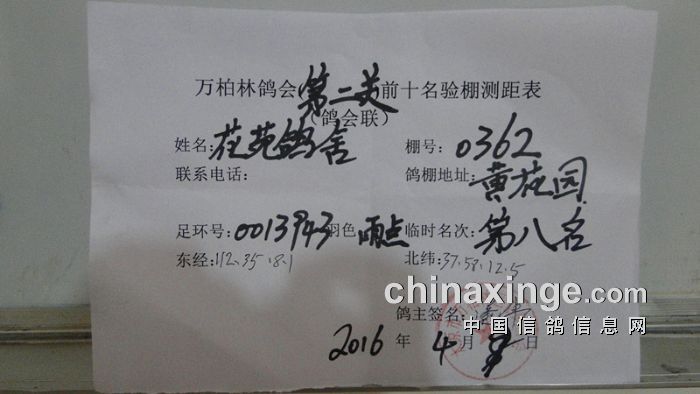 万柏林鸽会第二关前十名验棚测距表
（鸽会联）
姓名:花苑鸽舍 棚号:0362
联系电话: 鸽棚地址:黄花园
足环号:0013943羽色 雨点 临时名次:第八名
东经:112.35.8.1 北纬:37.58.12.5
chinaxinge.com
中国信鸽信息网
鸽主签名:
2016 年 4 月 日